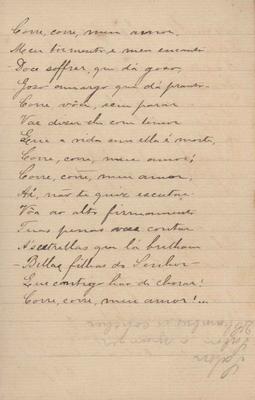 Corre, corre, meu amor,
Meu tormento e meu encanto
Doce soffrer, que dá goso,
Goso amargo que dá pranto.
Corre vôa, sem parar
Vae dizer-lh com
Que a vida sem ella é morte,
Corre, corre, meu amor!
Corre, corre, meu amor,
Ai, não te quiz escutar.
Vôa ao alto firmamento
Tuas penas vae contar
A's estrellas que lá brilham
– Bellas filhas do Senhor –
Que comtigo hão de chorar!
Corre, corre, meu amor!...